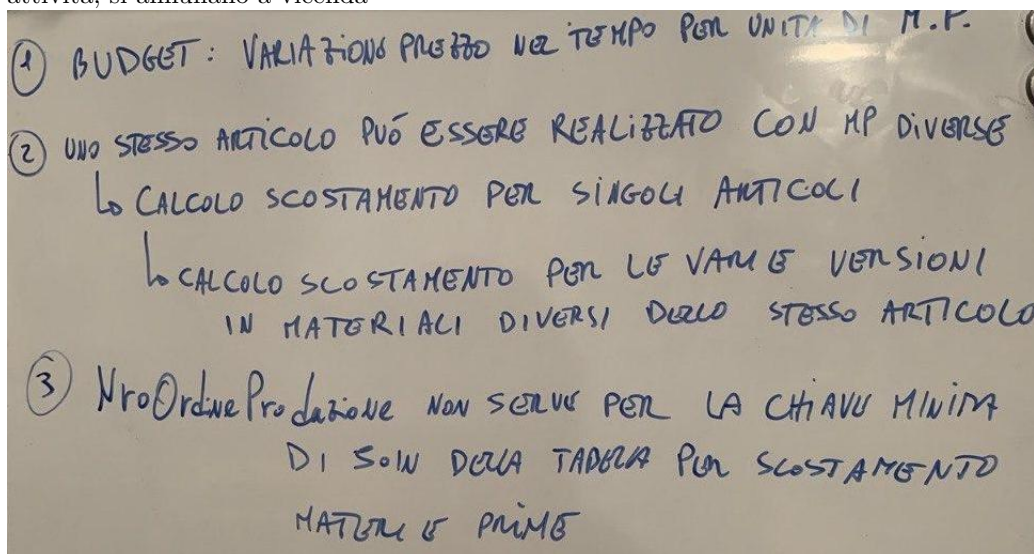 attività, si annullano a vicenda
① BUDGET: VARIAZIONE PREZZO NEL TEMPO PER UNITA DI M.P.
② UNO STESSO ARTICOLO PUÓ ESSERE REALIZZATO CON MP DIVERSE
↳ CALCOLO SCOSTAMENTO PER SINGOLI ARTICOLI
↳ CALCOLO SCOSTAMENTO PER LE VARIE VERSIONI
IN MATERIALI DIVERSI DELLO STESSO ARTICOLO
③ NroOrdineProduzione NON SERVE PER LA CHIAVE MINIMA
DI JOIN DELLA TABELLA PER SCOSTAMENTO
MATERIE PRIME